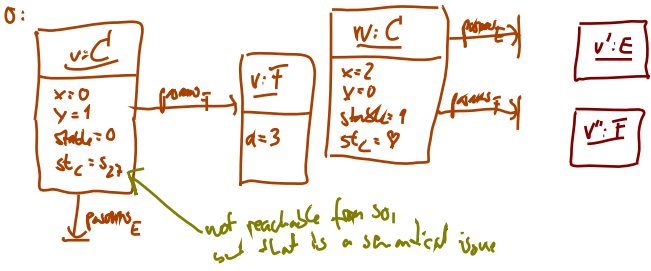 σ:
v:C
x=0
y=1
stable=0
st_C=s_27
params_F
params_E
v:F
a=3
w:C
x=2
y=0
stable=1
params_E
params_F
v':E
v'':F
not reachable from s01
but that is a semantical issue